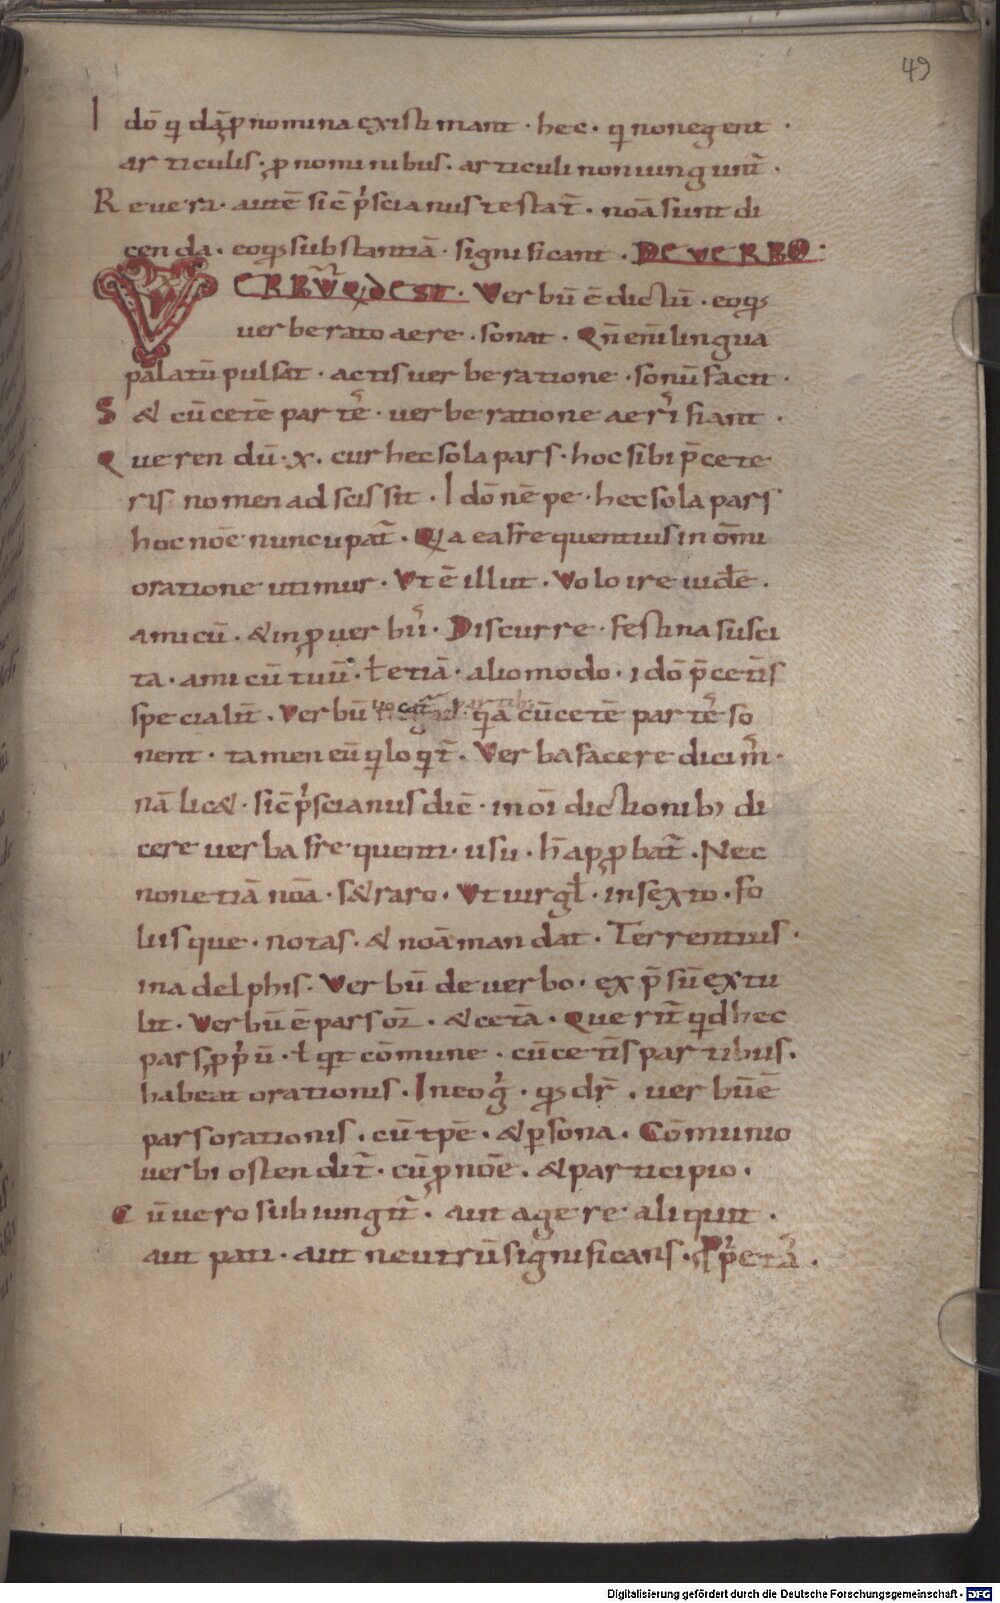 49
I dō q̄ dā p̄nomina existimant · hec · q̄ non egent ·
articulis · p̄nominibus · articuli non iungunt̄ ·
Re uera · autē sic̄ p̓scianus testat̄ · noā sunt di
cenda · eoq̄ substantiā · significant · DE VERBO ·
VERBŪ QD EST · Verbū ē dictū · eoq̄
uerberato aere · sonat · Qn̄ enī lingua
palatū pulsat · actis uerberatione · sonū facit ·
S& cū ceterē partes · uerberatione aeris fiant ·
Querendū · x · cur hec sola pars · hoc sibi p̄ cete
ris nomen adscissit · I dō nēpe · hec sola pars
hoc noē nuncupat̄ · Q̄a ea frequentius in om̄i
oratione utimur · Vt ē illut · Volo ire uidē ·
amicū · & in p̄uerbiis · Discurre · festina susci
ta · amicū tuū · ł etiā · alio modo · idō p̄ cet̄is
specialit̄ · Verbū uocat̄ q̄a cū cetē partes so
nent · tamen eū q̄ loq̄t̄ · Verba facere dicim̓ ·
nā lic& · sic̄ p̓scianus dic̄ · in oī dictionib; di
cere uerba frequenti · usu · h̄ app̄bat̄ · Nec
non etiā noā · s& raro · Vt uirgł · in sexto · fo
liisque · notas · & noā mandat · Terrentius ·
in adelphis · Verbū de uerbo · exp̄sū extu
lit · Verbū ē pars or̄ · & cetā · Querit̄ qd hec
pars p̄p̓ū · ł qt cōmune · cū cet̄is partibus ·
habeat orationis · In eo g̓ · qd dr̄ · uerbū ē
pars orationis · cū tp̄e · & p̱sona · Cōmunio
uerbi ostendit̄ · cū p̄noē · & participio ·
Cū uero subiungit̄ · aut agere aliquit ·
aut pati · aut neutrū significans · p̓p̓etā ·
Digitalisierung gefördert durch die Deutsche Forschungsgemeinschaft - DFG